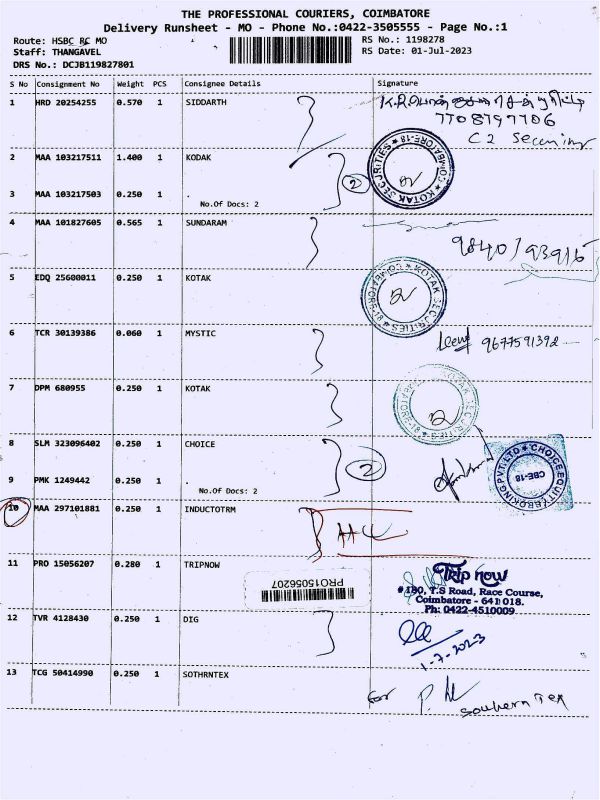 THE PROFESSIONAL COURIERS, COIMBATORE
Delivery Runsheet - MO - Phone No.:0422-3505555 - Page No.:1
Route: HSBC RC MO
RS No.: 1198278
Staff: THANGAVEL
RS Date: 01-Jul-2023
DRS No.: DCJB119827801
S No Consignment No Weight PCS Consignee Details Signature
1 HRD 20254255 0.570 1 SIDDARTH
7708797706
C2 Security
2 MAA 103217511 1.400 1 KODAK
KOTAK SECURITIES * COIMBATORE-18 *
3 MAA 103217503 0.250 1 .
No.Of Docs: 2
2
4 MAA 101827605 0.565 1 SUNDARAM
5 EDQ 25600011 0.250 1 KOTAK
KOTAK SECURITIES * COIMBATORE-18 *
6 TCR 30139386 0.060 1 MYSTIC
9677591392
7 DPM 680955 0.250 1 KOTAK
KOTAK SECURITIES * COIMBATORE-18 *
8 SLM 323096402 0.250 1 CHOICE
2
CHOICE EQUITY BROKING PVT.LTD *
CBE-18
9 PMK 1249442 0.250 1 .
No.Of Docs: 2
10 MAA 297101881 0.250 1 INDUCTOTRM
11 PRO 15056207 0.280 1 TRIPNOW
PRO15056207
Trip now
# 180, T.S Road, Race Course,
Coimbatore - 641 018.
Ph: 0422-4510009
12 TVR 4128430 0.250 1 DIG
1-7-2023
13 TCG 50414990 0.250 1 SOTHRNTEX
for
Southern Tex